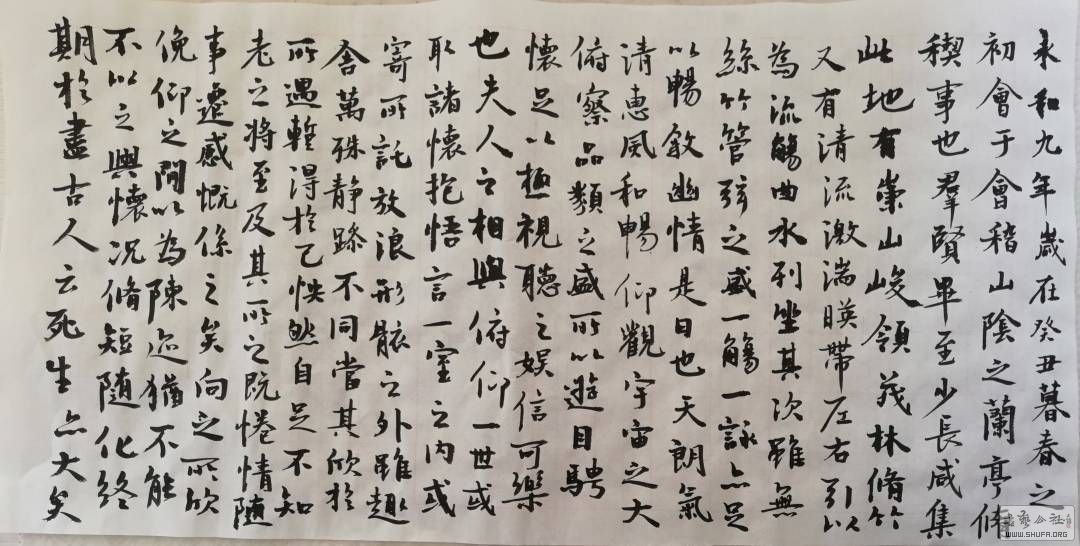 永和九年歲在癸丑暮春之
初會于會稽山陰之蘭亭脩
稧事也羣賢畢至少長咸集
此地有崇山峻領茂林脩竹
又有清流激湍暎帶左右引以
為流觴曲水列坐其次雖無
絲竹管弦之盛一觴一詠亦足
以暢敘幽情是日也天朗氣
清惠風和暢仰觀宇宙之大
俯察品類之盛所以遊目騁
懷足以極視聽之娛信可樂
也夫人之相與俯仰一世或
取諸懷抱悟言一室之內或
寄所託放浪形骸之外雖趣
舍萬殊静躁不同當其欣於
所遇蹔得於己怏然自足不知
老之將至及其所之既惓情随
事遷感慨係之矣向之所欣
俛仰之間以為陳迹猶不能
不以之興懷況脩短随化終
期於盡古人云死生亦大矣
書法公社
WWW.SHUFA.ORG